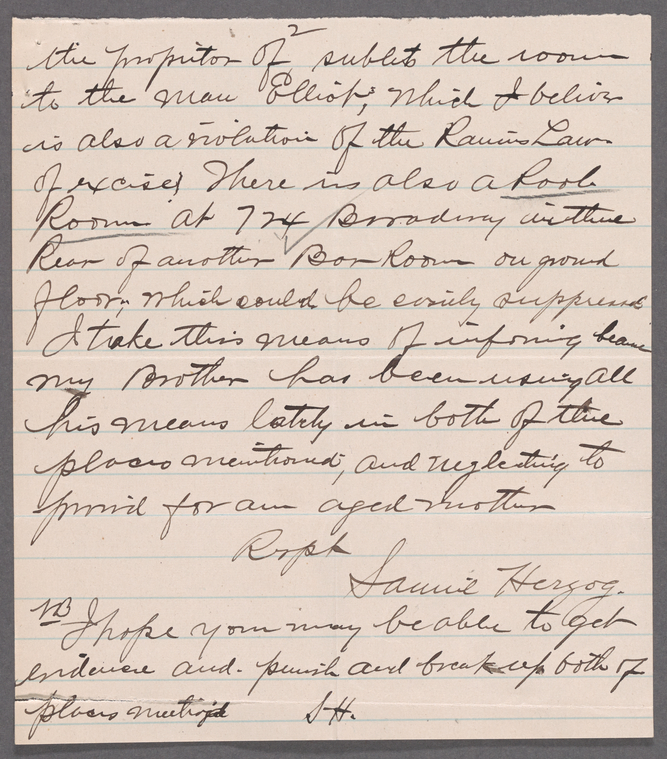 2
the propritor of sublets the room
to the man Elliot, which I believe
is also a violation of the Raines Law
of excise. There is also a Pool
Room at 724 Broadway in the
Rear of another Bar Room on ground
floor, which could be easily suppressed
I take this means of informing because
my Brother has been using all
his means lately in both of the
places mentioned, and neglecting to
provid for an aged mother
Respt
Samuel Herzog.
NB I hope you may be able to get
evidence and punish and break up both of
places S.H.